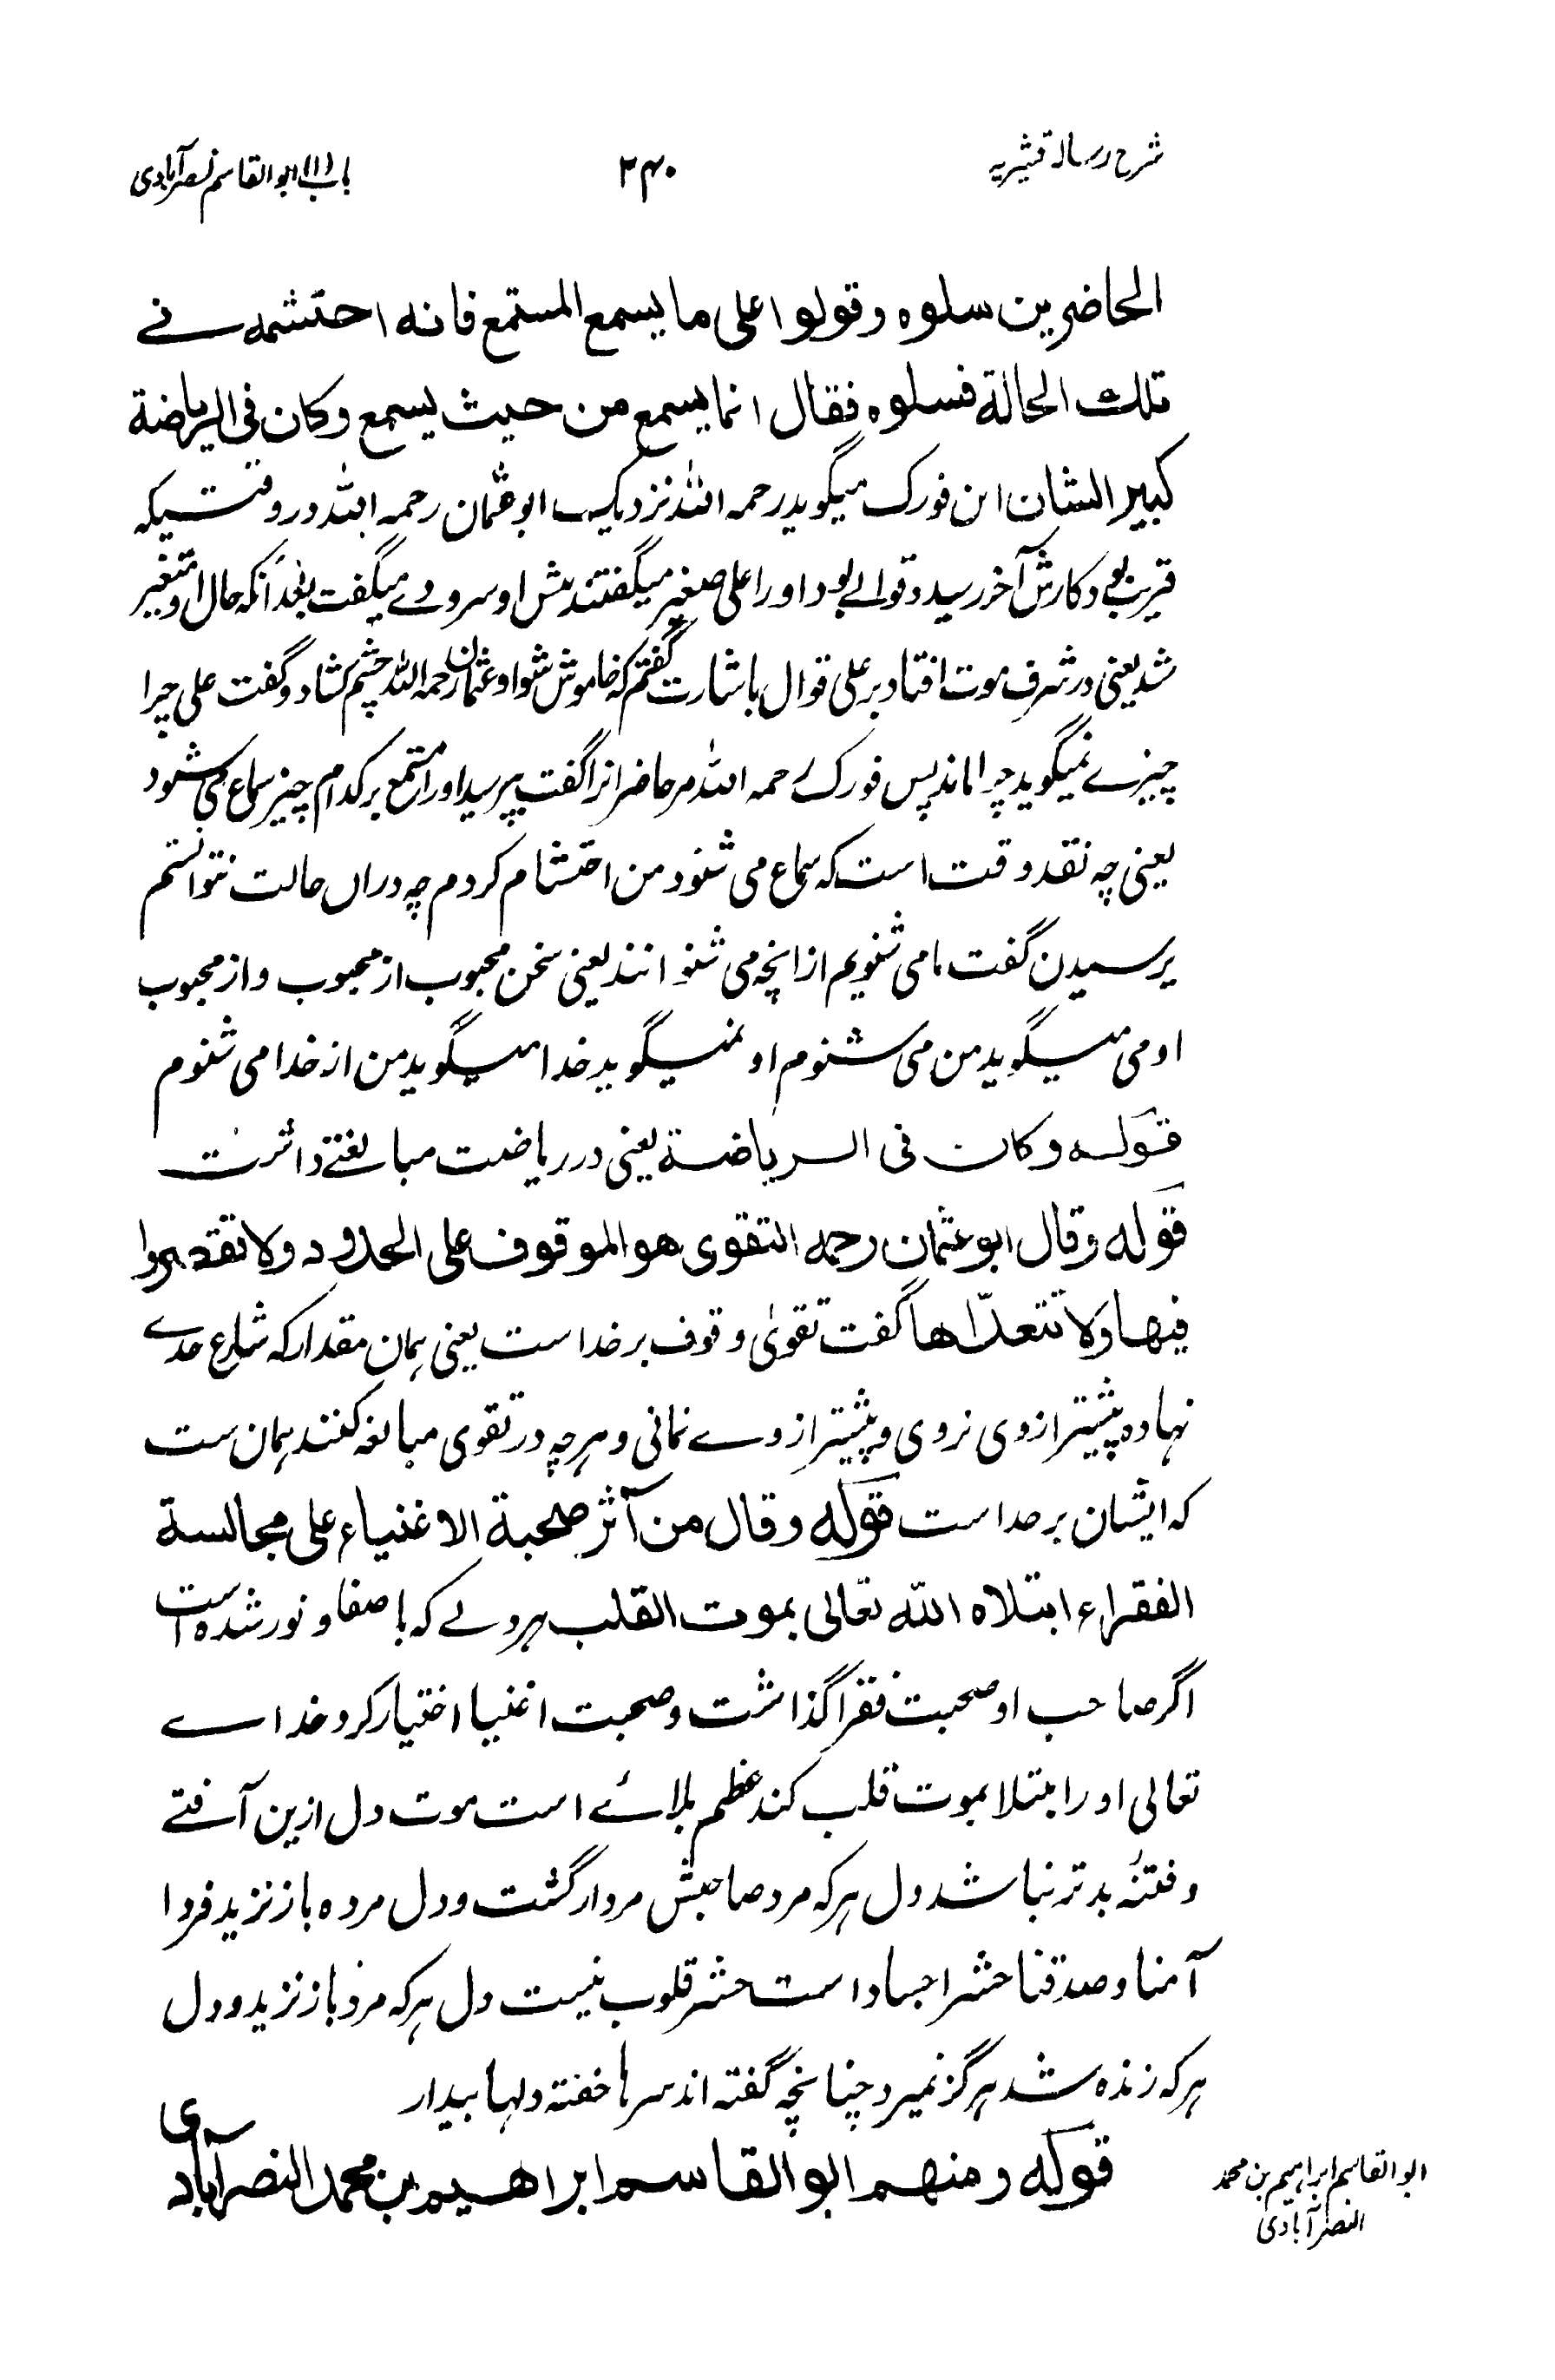 شرح رسالہ قشیریہ
۲۴۰
باب (۱۱) ابوالقاسم نصرآبادی
الحاضرین سلوه وقولوا علی ما یسمع المستمع فانه احتشمه فے
تلك الحالة فسلوه فقال انما یسمع من حیث یسمع وکان فی الریاضة
کبیر الشان ابن فورک میگوید رحمہ اللہ نزدیک ابو عثمان رحمہ اللہ در وقتیکہ
قریب بود کارش آخر رسید و قوالے بود او را علی صغیر میگفتند پیش او سرودے میگفت بعد آنکہ حال او متغیر
شد یعنی در شرف موت افتاد بر علی قوال باشارت گفتم کہ خاموش شو ابو عثمان رحمہ اللہ چشم کشاد و گفت علی چرا
چیزے نمیگوید چرا ماند پس فورک رحمہ اللہ مر حاضرانرا گفت بپرسید او را مستمع بر کدام چیز سماع می شنود
یعنی چہ نقد وقت است کہ سماع می شنود من احتشام کردم چہ دران حالت نتوانستم
پرسیدن گفت ما می شنویم از انچہ می شنوانند یعنی سخن محبوب از محبوب و از محبوب
او می میگوید من می شنوم او نمیگوید خدا میگوید من از خدا می شنوم
قوله وکان فی الریاضة یعنی در ریاضت مبالغتے داشت
قوله وقال ابو عثمان رحمه التقوی هو الموقوف علی الحدود ولا تقصروا
فیها ولا تتعداها گفت تقویٰ وقوف بر خداست یعنی ہمان مقدار کہ شارع حدے
نہادہ پیشتر ازوی نروی و پیشتر از وے نمانی و ہرچہ در تقوی مبالغہ کنند ہمان ست
کہ ایشان بر حد است قوله وقال من آثر صحبة الاغنیاء علی مجالسة
الفقراء ابتلاه الله تعالی بموت القلب ہر دلے کہ با صفا و نور شدہ است
اگر صاحب او صحبت فقرا گذاشت و صحبت اغنیا اختیار کرد خداے
تعالی او را مبتلا بموت قلب کند عظم بلائے است موت دل ازین آفتے
و فتنہ بدتر نباشد دل ہر کہ مرد صاحبش مردار گشت و دل مردہ باز نزید فردا
آمنا وصدقنا حشر اجساد است حشر قلوب نیست دل ہر کہ مرد باز نزید و دل
ہر کہ زندہ شد ہرگز نمیرد چنانچہ گفتہ اند سرہا خفتہ دلہا بیدار
قوله ومنهم ابو القاسم ابراهیم بن محمد النصرآبادی
ابوالقاسم ابراہیم بن محمد
النصرآبادی